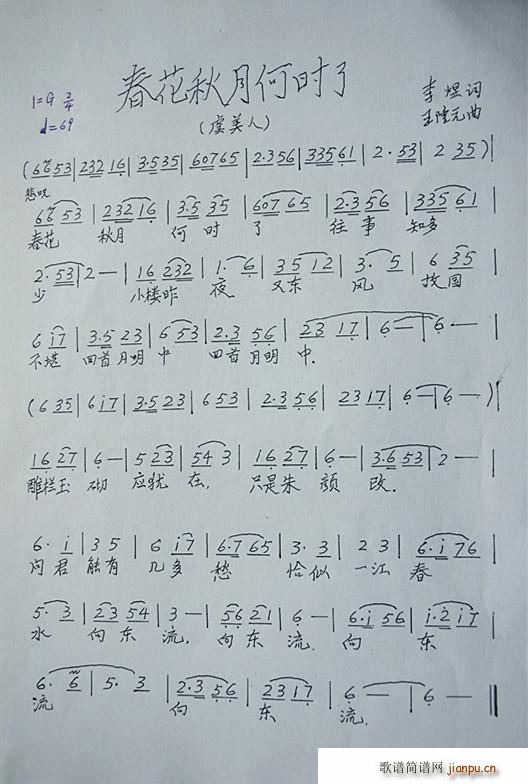 春花秋月何时了
1=G 2/4
♩=69
(虞美人)
李煜词
王陆元曲
(6 6 5 3 | 2 3 2 1 6 | 3·5 3 5 | 6 0 7 6 5 | 2·3 5 6 | 3 3 5 6 1 | 2· 5 3 | 2 3 5 )|
悲叹
6 6 5 3 | 2 3 2 1 6 | 3·5 3 5 | 6 0 7 6 5 | 2·3 5 6 | 3 3 5 6 1 |
春花 秋月 何时 了 往事 知多
2· 5 3 | 2 — | 1 6 2 3 2 | 1· 6 | 3 5 1 2 | 3· 5 | 6 3 5 |
少 小楼昨 夜 又东 风 故国
6 i 7 | 3·5 2 3 | 6 5 3 | 2·3 5 6 | 2 3 1 7 | 6 — | 6 — |
不堪 回首月明 中 回首月明 中.
(6 3 5 | 6 i 7 | 3·5 2 3 | 6 5 3 | 2·3 5 6 | 2 3 1 7 | 6 — | 6 — )|
1 6 2 7 | 6 — | 5 2 3 | 5 4 3 | 1 6 2 7 | 6 — | 3·6 5 3 | 2 — |
雕栏玉 砌 应犹 在, 只是朱 颜 改.
6· i | 3 5 | 6 i 7 | 6·7 6 5 | 3· 3 | 2 3 | 6·i 7 6 |
问君 能有 几多 愁 恰似 一江 春
5· 3 | 2 3 5 4 | 3 — | 5 6 2 1 | 6 — | 6·i 5 6 | i·2 i 7 |
水 向东 流, 向东 流. 向 东
6· 6 | 5· 3 | 2·3 5 6 | 2 3 1 7 | 6 — | 6 — ‖
流 向 东 流.
歌谱简谱网
jianpu.cn